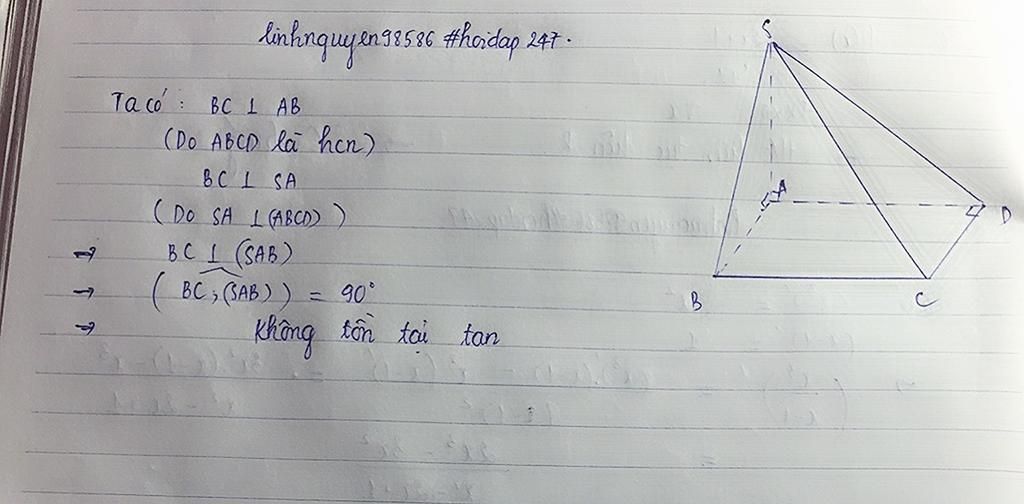 linhnguyen98586 #hoidap247.
Ta có: BC ⊥ AB
(Do ABCD là hcn)
BC ⊥ SA
(Do SA ⊥ (ABCD))
→ BC ⊥ (SAB)
→ (BC; (SAB)) = 90°
→ Không tồn tại tan
S
A
D
B
C